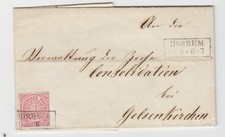 An die
HORREM
Verwaltung der Zeche
Consolidation
bei
Gelsenkirchen
HORREM